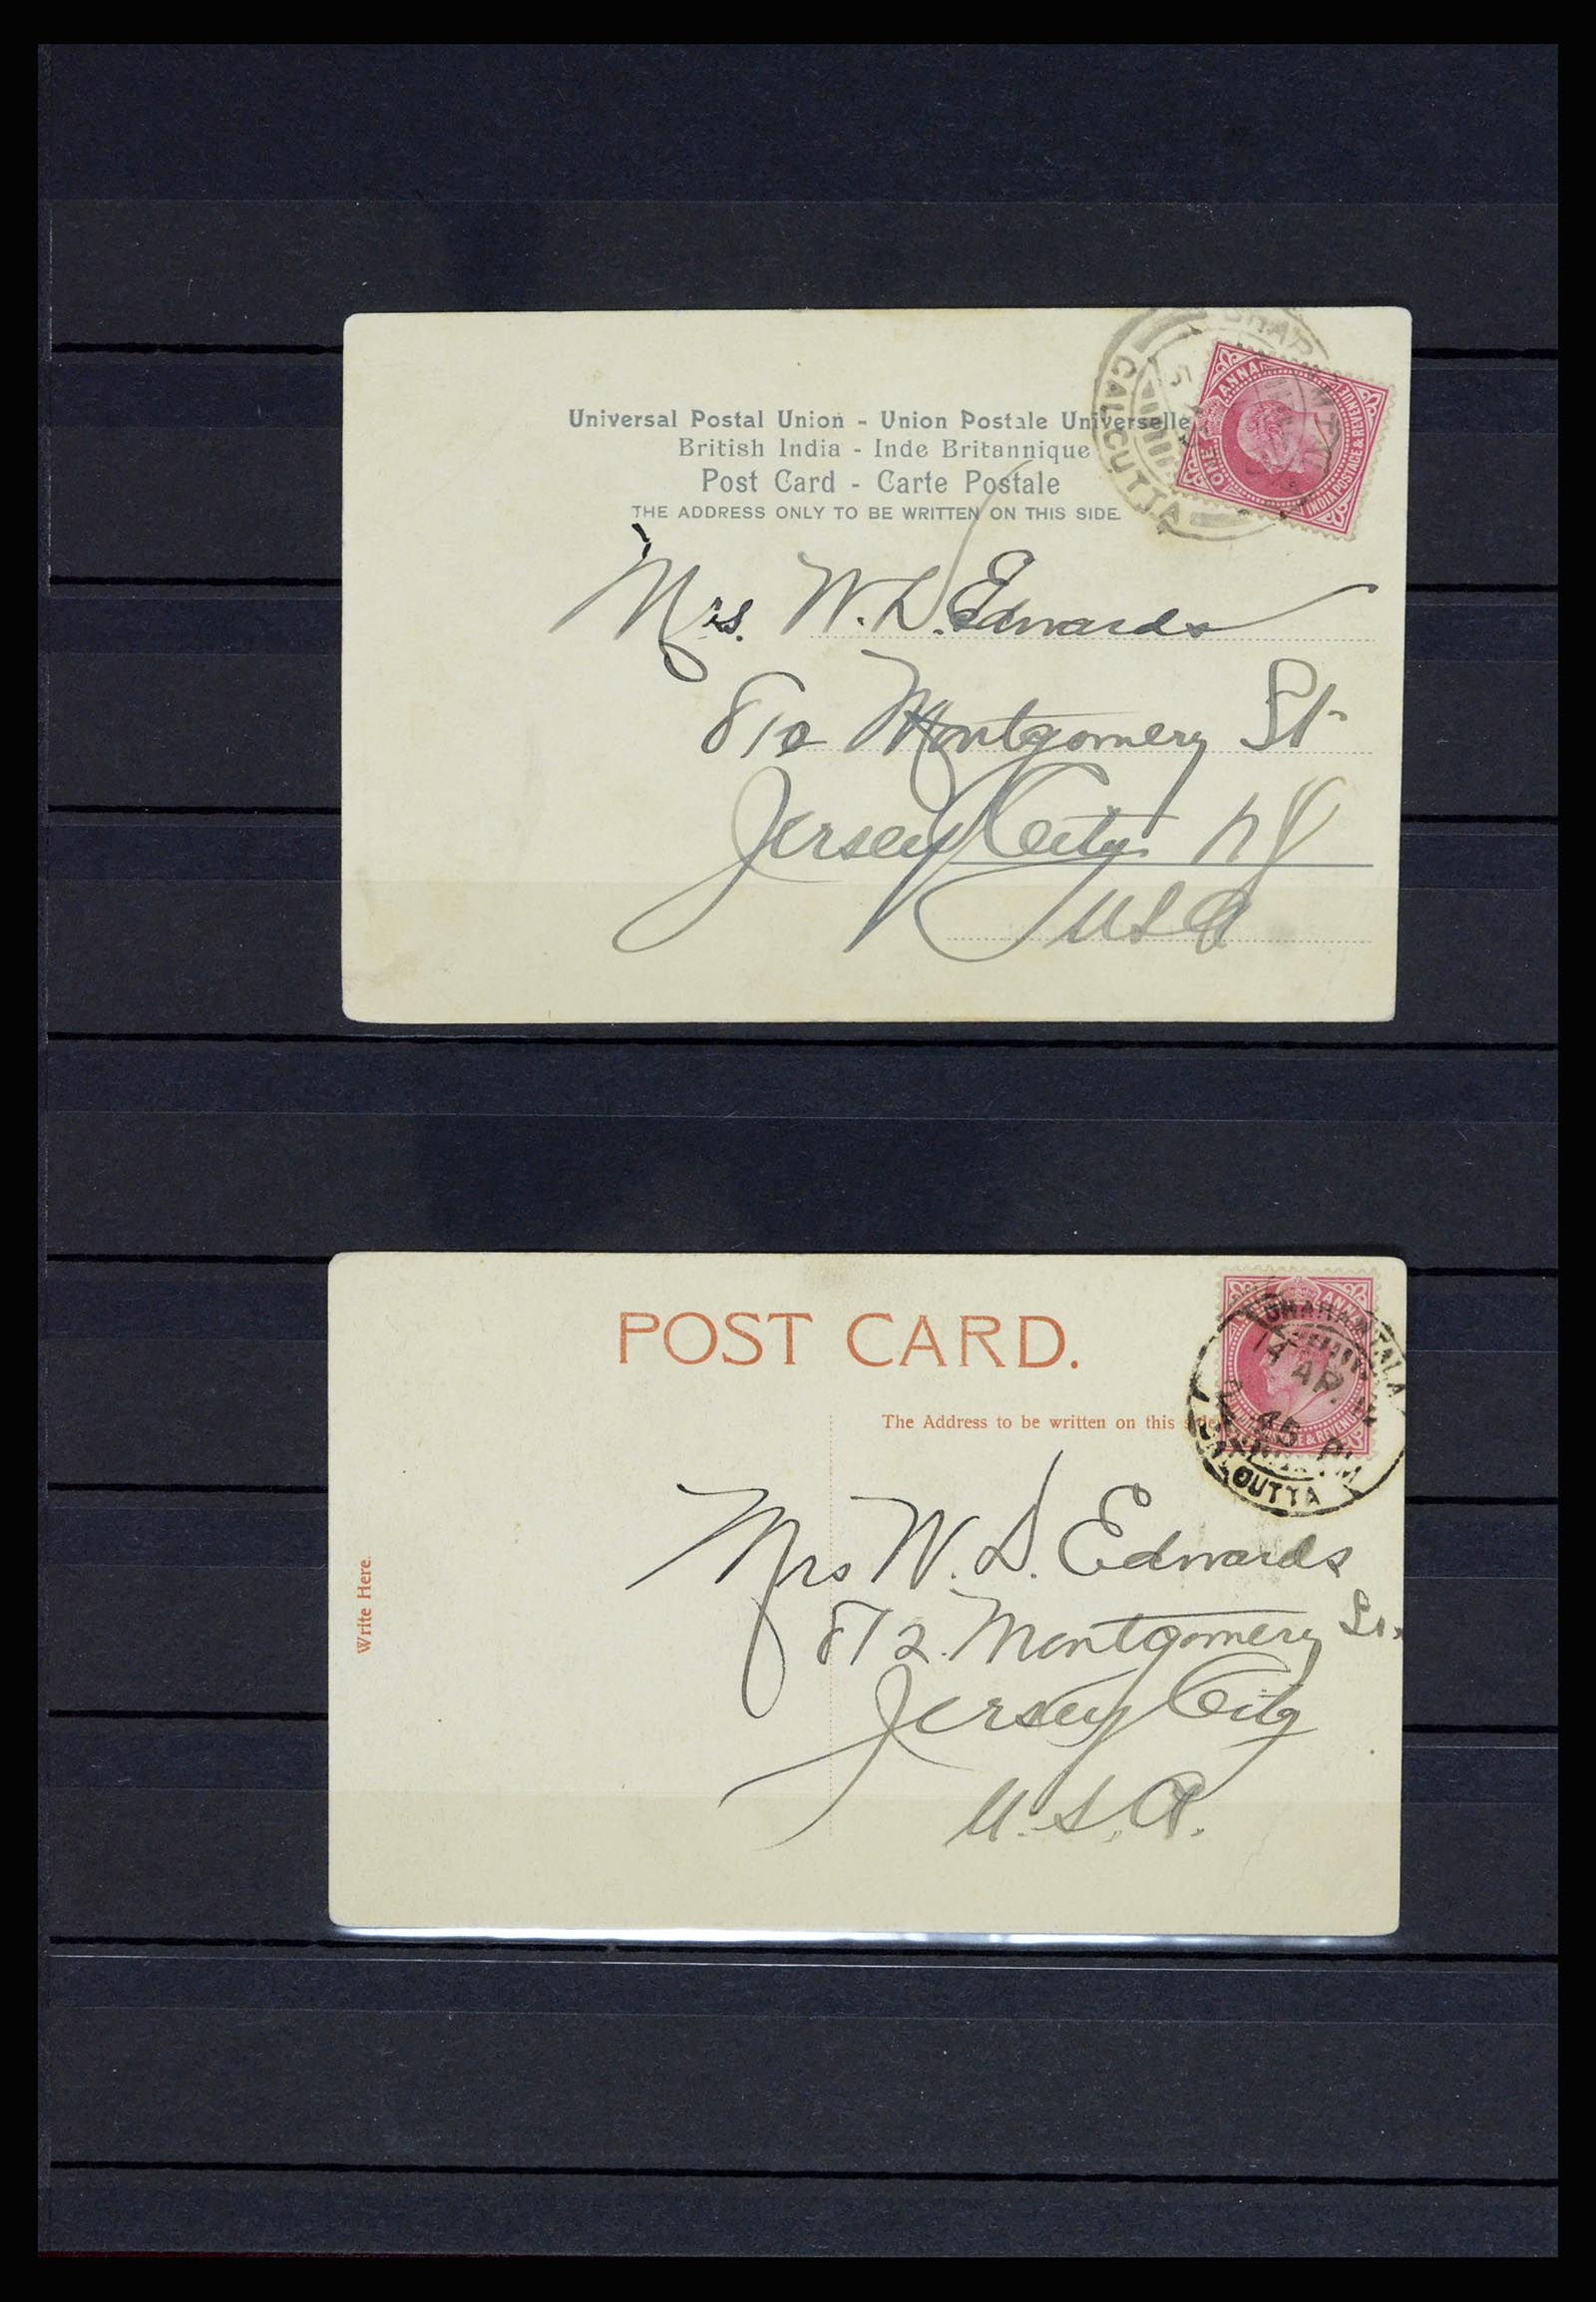 Universal Postal Union - Union Postale Universelle
British India - Inde Britannique
Post Card - Carte Postale
THE ADDRESS ONLY TO BE WRITTEN ON THIS SIDE.
CALCUTTA
ONE ANNA
INDIA POSTAGE & REVENUE
Mrs. W. D. Edwards
812 Montgomery St
Jersey City NJ
USA
POST CARD.
The Address to be written on this side
DHARAMTALA
AP
45 PM
ANNA
Write Here.
Mrs W. D. Edwards
812 Montgomery St.
Jersey City
U.S.A.